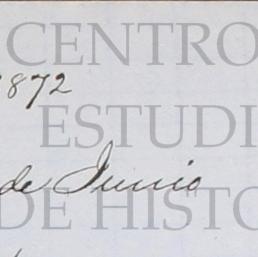 CENTRO
1872
ESTUDI
de Junio
DE HISTO